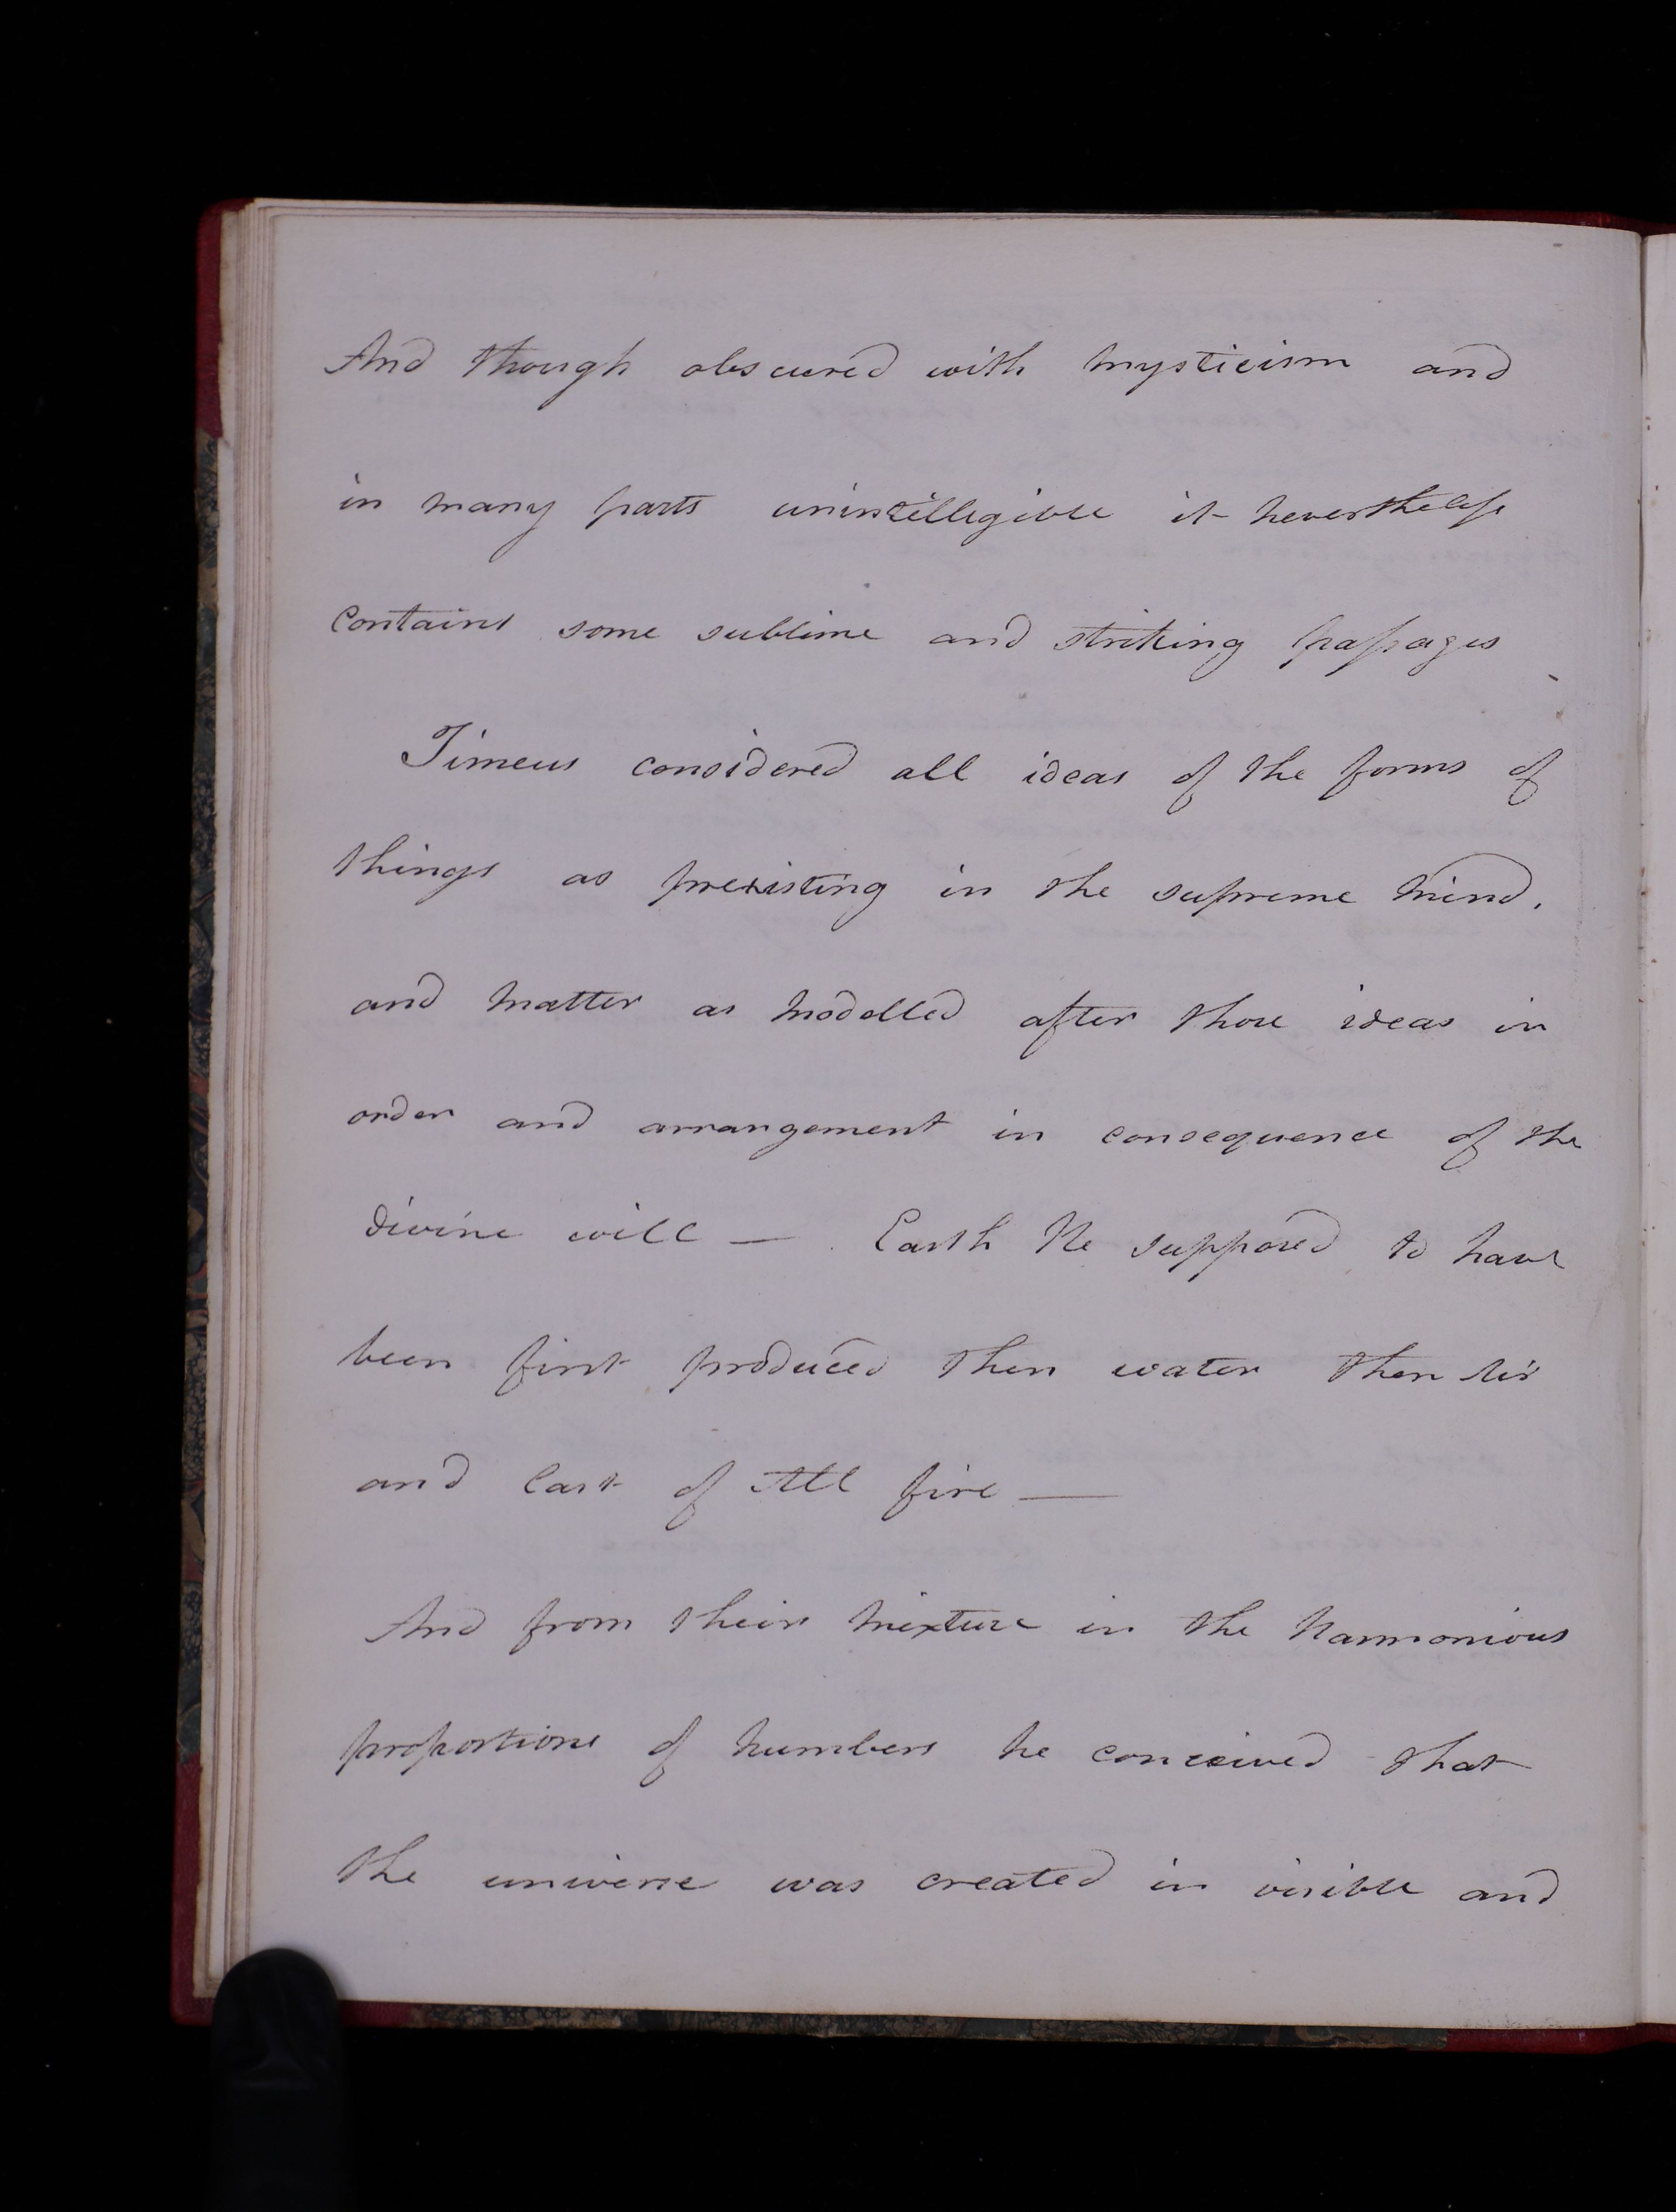 And though obscured with mysticism and
in many parts unintellegible it nevertheless
contains some sublime and striking passages
Timeus considered all ideas of the forms of
things as prexisting in the supreme mind.
and matter as modelled after those ideas in
order and arrangement in consequence of the
divine will — Earth He supposed to have
been first produced then water then Air
and last of All fire —
And from their mixture in the Harmonious
proportions of numbers he conceived that
the universe was created in visible and